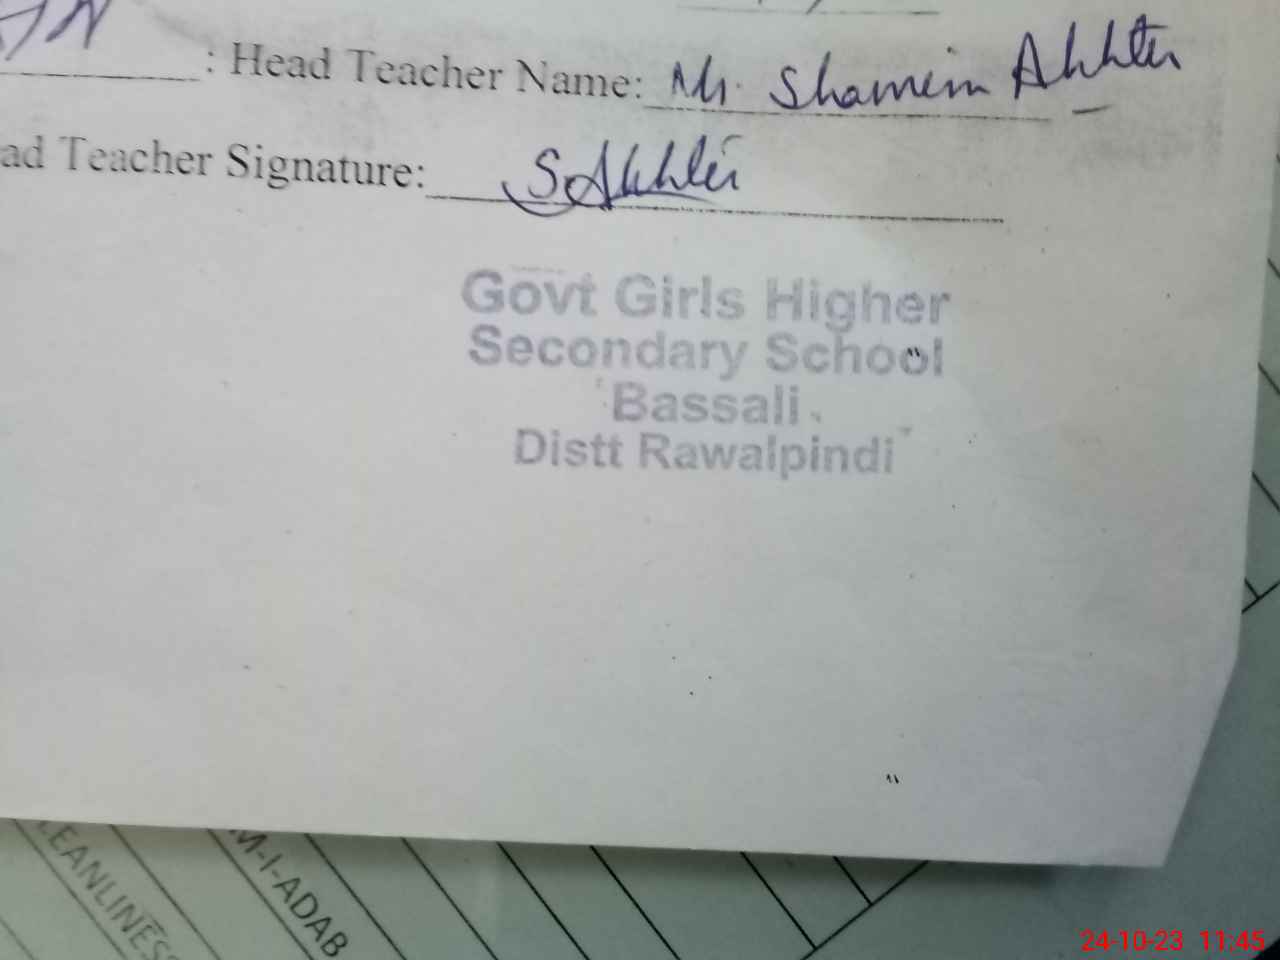 : Head Teacher Name: Mr. Shamim Akhter
ad Teacher Signature: S Akhter
Govt Girls Higher
Secondary School
Bassali
Distt Rawalpindi
LEANLINESS
M-I-ADAB
24-10-23 11:45